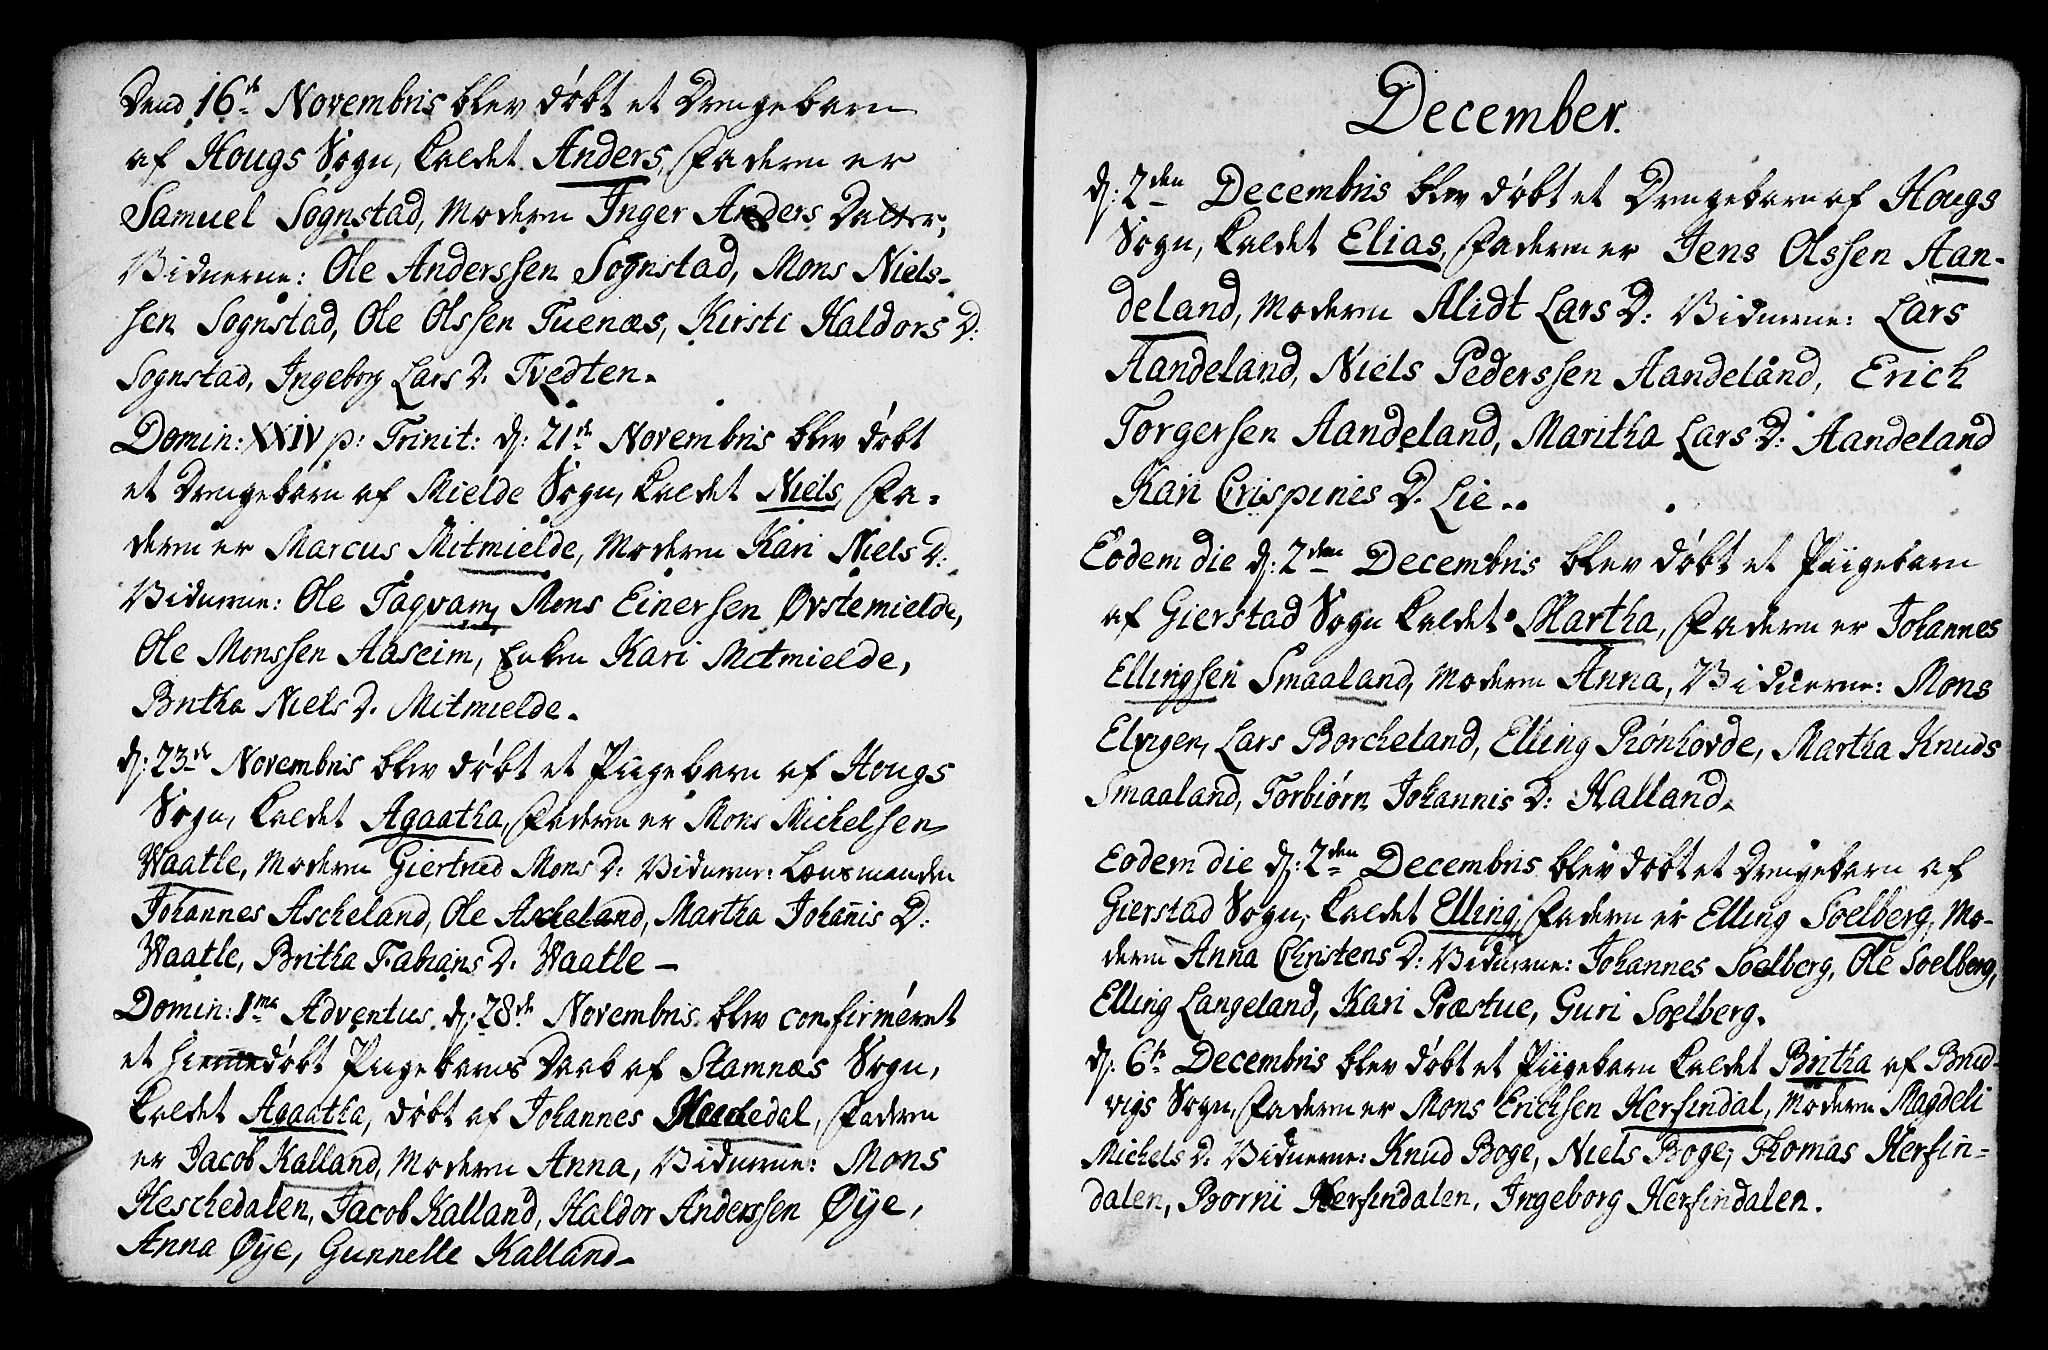 Dend 16de Novembris blev døbt et Drengebarn
af Hougs Sogn, kaldet Anders, Faderen er
Samuel Sognstad, Moderen Inger Anders Datter,
Vidnerne: Ole Anderssen Sognstad, Mons Niels-
sen Sognstad, Ole Olssen Tuenæs, Kirsti Haldors D:
Sognstad, Ingeborg Lars D. Tvedten.
Domin: XXIV p: Trinit: d: 21de Novembris blev døbt
et Drengebarn af Mielde Sogn, kaldet Niels, Fa-
deren er Marcus Mitmielde, Moderen Kari Niels D:
Vidnerne: Ole Taqvam, Mons Einersen Øvstemielde,
Ole Monssen Aaseim, Enken Kari Mitmielde,
Britha Niels D. Mitmielde.
d: 23de Novembris blev døbt et Piigebarn af Hougs
Sogn, kaldet Agaatha, Faderen er Mons Michelsen
Waatle, Moderen Giertrud Mons D: Vidnerne: Lensmanden
Johannes Ascheland, Ole Ascheland, Martha Johannis D:
Waatle, Britha Fabians D. Waatle —
Domin: 1ma Adventus d: 28de Novembris blev confirmeret
et hiemmedøbt Piigebarns Daab af Stamnæs Sogn,
kaldet Agaatha, døbt af Johannes Heschedal, Faderen
er Jacob Kalland, Moderen Anna, Vidnerne: Mons
Heschedalen, Jacob Kalland, Haldor Anderssen Øÿe,
Anna Øÿe, Gunnelle Kalland —
December.
d: 2den Decembris blev døbt et Drengebarn af Hougs
Sogn, kaldet Elias, Faderen er Jens Olssen Aan-
deland, Moderen Alidt Lars D: Vidnerne: Lars
Aandeland, Niels Pederssen Aandeland, Erich
Torgersen Aandeland, Maritha Lars D: Aandeland
Kari Crispines D. Lie..
Eodem die d: 2den Decembris blev døbt et Piigebarn
af Gierstad Sogn kaldet Martha, Faderen er Johannes
Ellingsen Smaaland, Moderen Anna, Vidnerne: Mons
Elvigen, Lars Borcheland, Elling Rönhovde, Martha Knuds
Smaaland, Torbiörn Johannis D: Halland.
Eodem die d: 2den Decembris blev døbt et Drengebarn af
Gierstad Sogn, kaldet Elling, Faderen er Elling Soelberg, Mo-
deren Anna Christens D: Vidnerne: Johannes Soelberg, Ole Soelberg,
Elling Langeland, Kari Præstue, Guri Soelberg.
d: 6te Decembris blev døbt et Piigebarn kaldet Britha af Brud-
vigs Sogn, Faderen er Mons Erichsen Hersindal, Moderen Magdeli
Michels D: Vidnerne: Knud Boge, Niels Boge, Thomas Hersin-
dalen, Borni Hersindalen, Ingeborg Hersindalen.